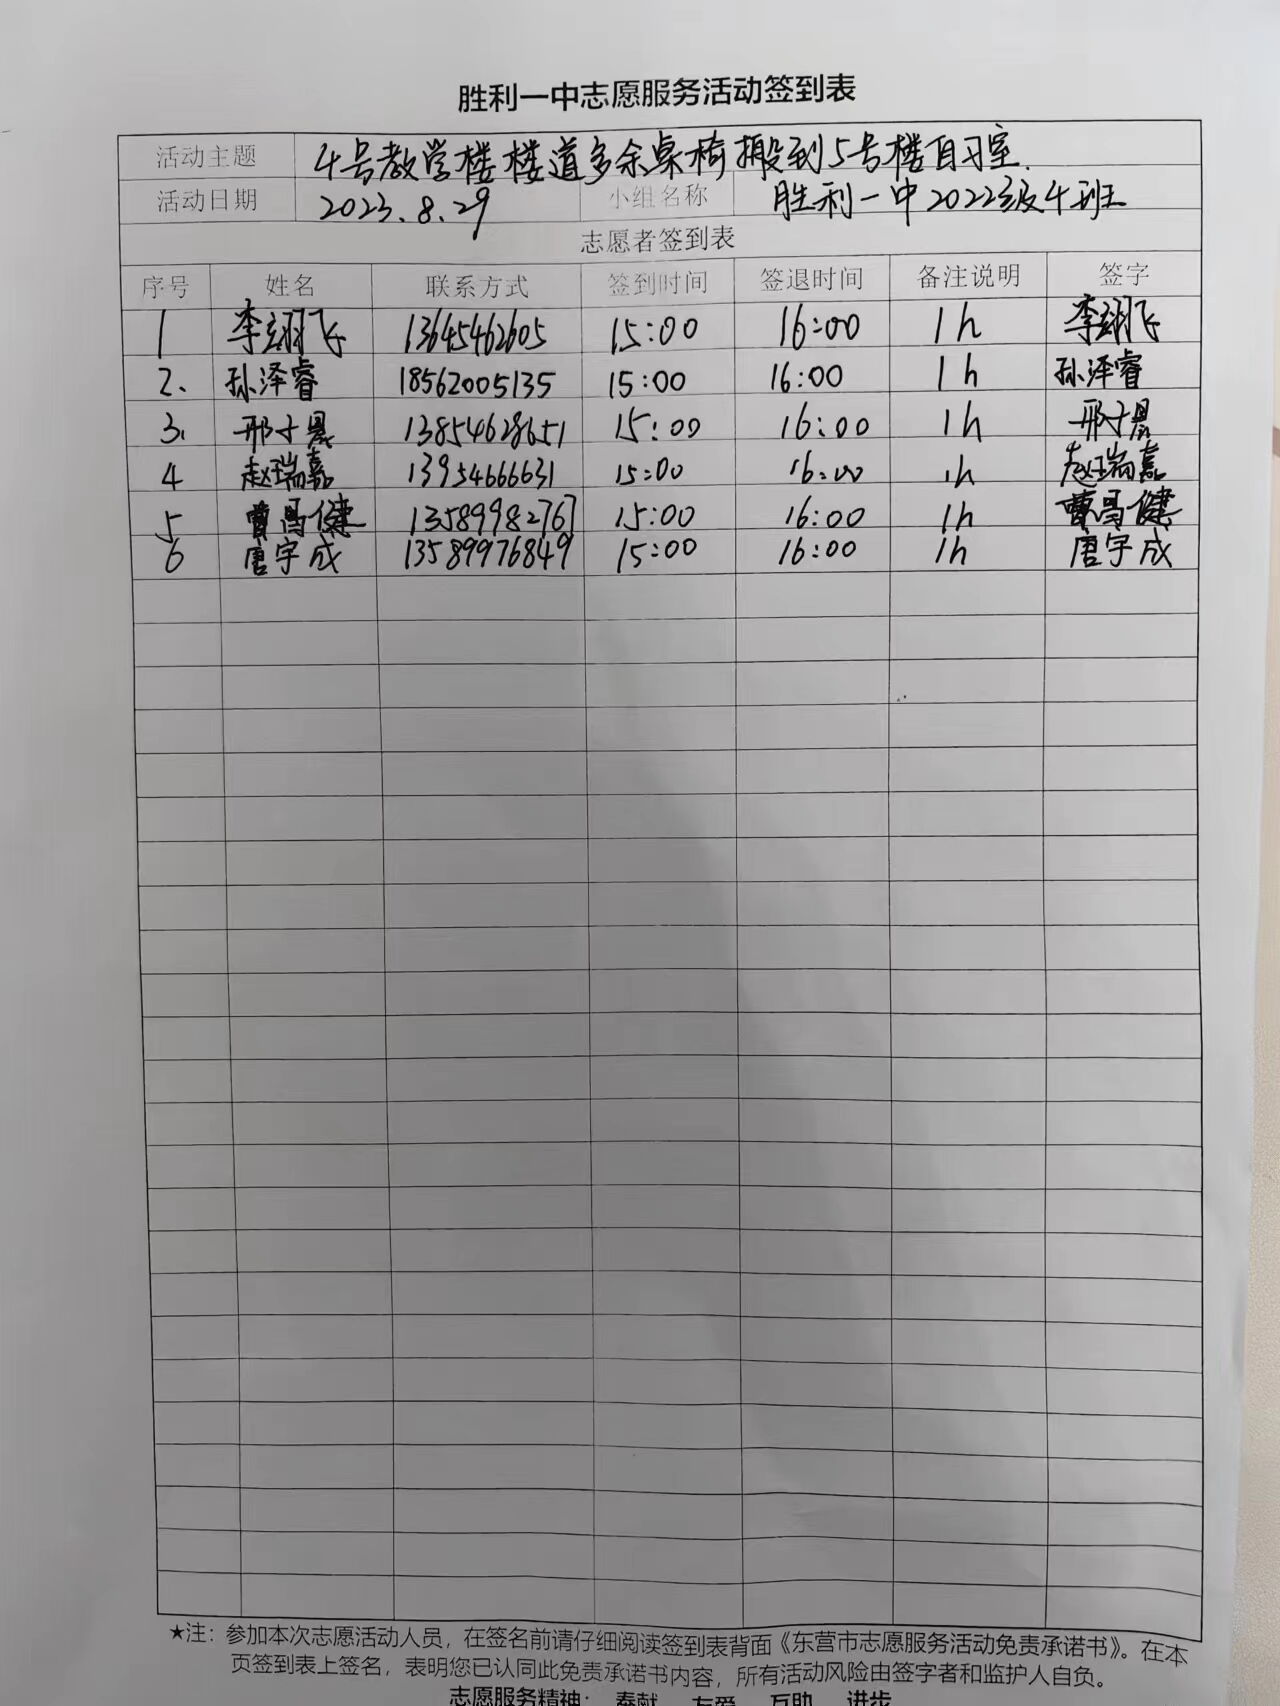 胜利一中志愿服务活动签到表
活动主题 4号教学楼楼道多余桌椅搬到5号楼自习室.
活动日期 2023.8.29 小组名称 胜利一中2022级4班
志愿者签到表
序号 姓名 联系方式 签到时间 签退时间 备注说明 签字
1 李翊飞 13645462605 15:00 16:00 1h 李翊飞
2、 孙泽睿 18562005135 15:00 16:00 1h 孙泽睿
3、 邢 13854628651 15:00 16:00 1h 邢
4 赵瑞嘉 13954666631 15:00 16:00 1h 赵瑞嘉
5 曹昌健 13589982767 15:00 16:00 1h 曹昌健
6 唐宇成 13589976849 15:00 16:00 1h 唐宇成
★注：参加本次志愿活动人员，在签名前请仔细阅读签到表背面《东营市志愿服务活动免责承诺书》。在本
页签到表上签名，表明您已认同此免责承诺书内容，所有活动风险由签字者和监护人自负。
志愿服务精神： 奉献 友爱 互助 进步